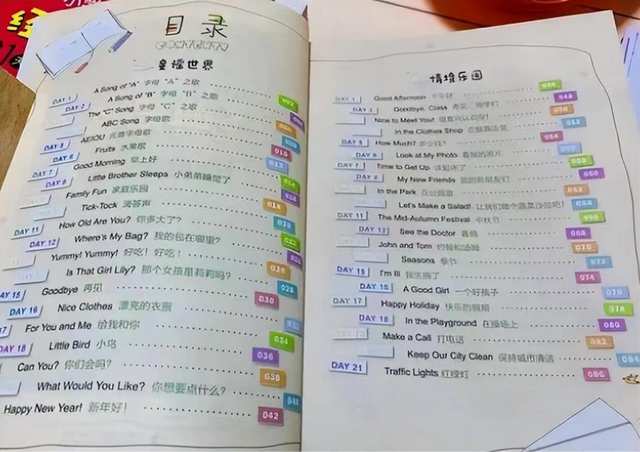 目录
CONTENTS
童谣世界
DAY 1 A Song of "A" 字母 "A" 之歌
DAY 2 A Song of "B" 字母 "B" 之歌
The "C" Song 字母 "C" 之歌
ABC Song 字母歌
AEIOU 元音字母歌
Fruits 水果歌
DAY 7 Good Morning 早上好
Little Brother Sleeps 小弟弟睡觉了
Family Fun 家庭乐园
Tick-Tock 滴答声
DAY 11 How Old Are You? 你多大了?
DAY 12 Where's My Bag? 我的包在哪里?
Yummy! Yummy! 好吃!好吃!
Is That Girl Lily? 那个女孩是莉莉吗?
DAY 15 Goodbye 再见 030
Nice Clothes 漂亮的衣服
For You and Me 给我和你 034
DAY 18 Little Bird 小鸟 036
Can You? 你们会吗? 038
What Would You Like? 你想要点什么?
Happy New Year! 新年好! 042
情境乐园
DAY 1 Good Afternoon
DAY 2 Goodbye, Class
Nice to Meet You!
In the Clothes Shop
How Much? 多少钱?
Look at My Photo 看我的照片
Time to Get Up
My New Friends 我的新朋友们
In the Park 在公园里
Let's Make a Salad! 让我们做个蔬菜沙拉吧!
DAY 11 The Mid-Autumn Festival 中秋节
DAY 12 See the Doctor 看病
John and Tom 约翰和汤姆
Seasons 季节
DAY 15 I'm Ill 我生病了 074
DAY 16 A Good Girl 一个好孩子
DAY 17 Happy Holiday 快乐的假期
DAY 18 In the Playground 在操场上 080
Make a Call 打电话 082
Keep Our City Clean 保持城市清洁
DAY 21 Traffic Lights 红绿灯 086